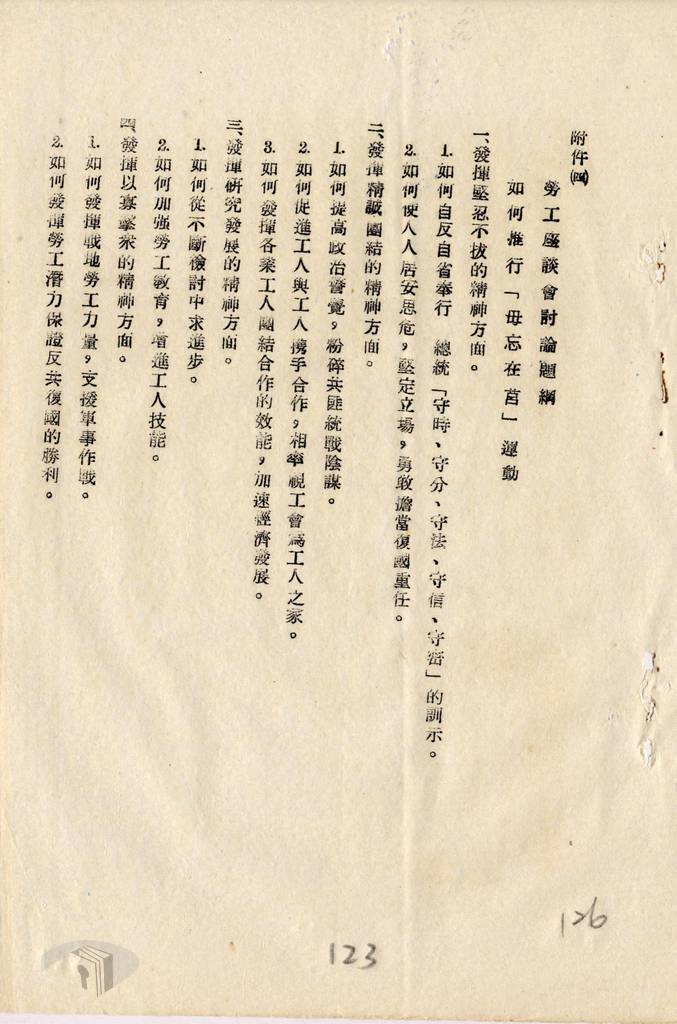 附件㈣
勞工座談會討論題綱
如何推行「毋忘在莒」運動
一、發揮堅忍不拔的精神方面。
1.如何自反自省奉行 總統「守時、守分、守法、守信、守密」的訓示。
2.如何使人人居安思危，堅定立場，勇敢擔當復國重任。
二、發揮精誠團結的精神方面。
1.如何提高政治警覺，粉碎共匪統戰陰謀。
2.如何促進工人與工人携手合作，相率視工會為工人之家。
3.如何發揮各業工人團結合作的效能，加速經濟發展。
三、發揮研究發展的精神方面。
1.如何從不斷檢討中求進步。
2.如何加强勞工教育，增進工人技能。
四、發揮以寡擊衆的精神方面。
1.如何發揮戰地勞工力量，支援軍事作戰。
2.如何發揮勞工潛力保證反共復國的勝利。
126
123